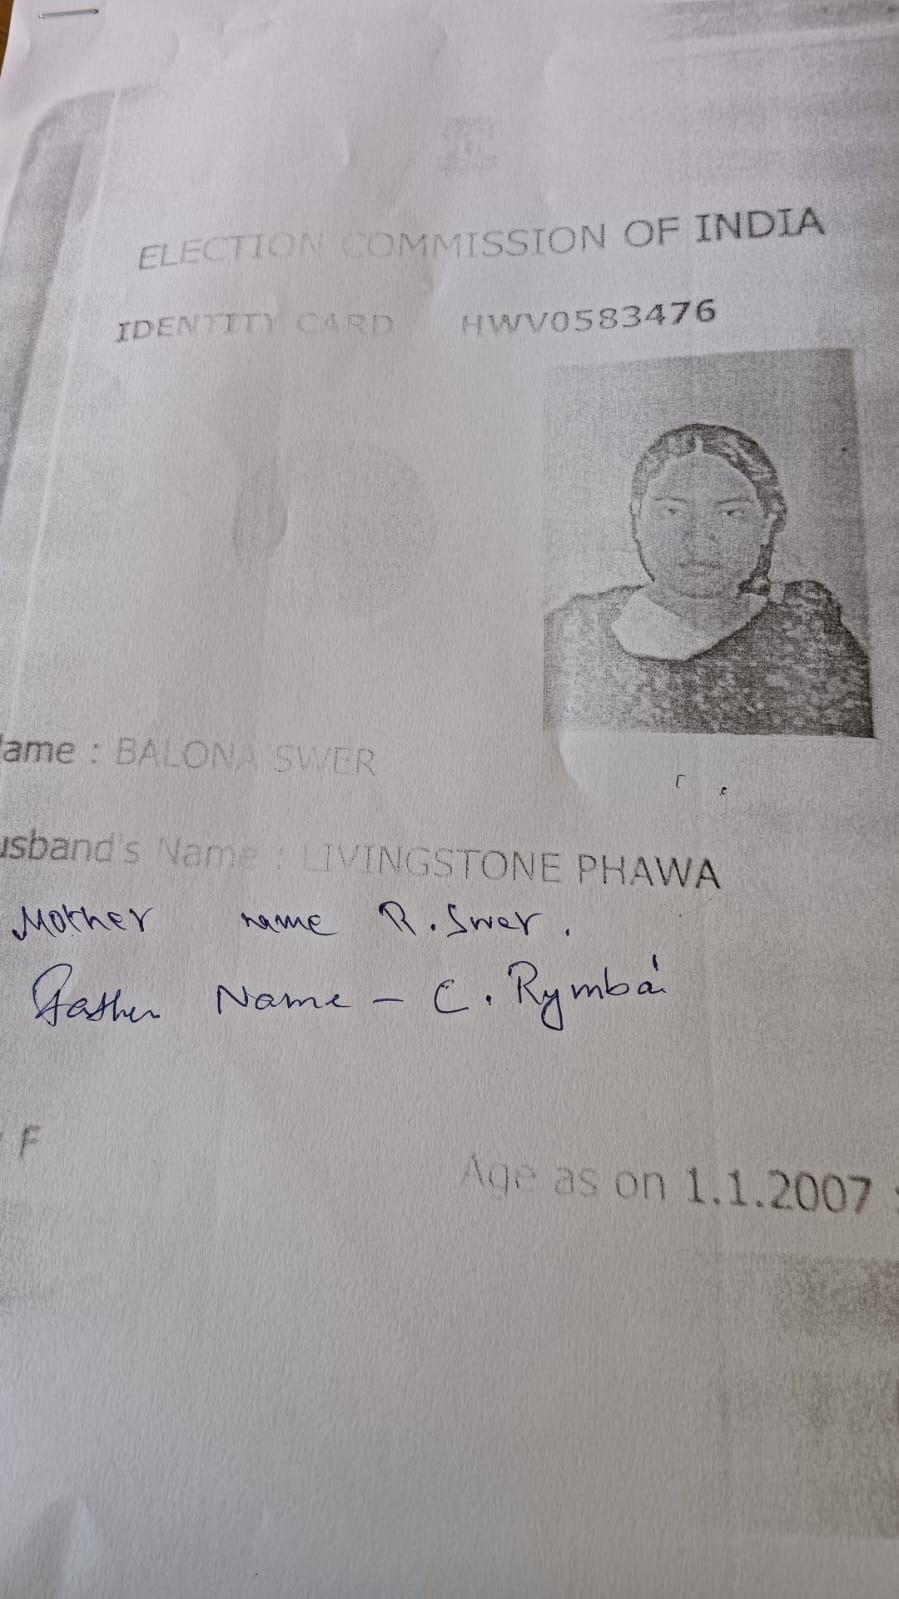 ELECTION COMMISSION OF INDIA
IDENTITY CARD HWV0583476
ame : BALONA SWER
usband's Name : LIVINGSTONE PHAWA
Mother name R. Swer.
Father Name – C. Rymbai
F
Age as on 1.1.2007 :